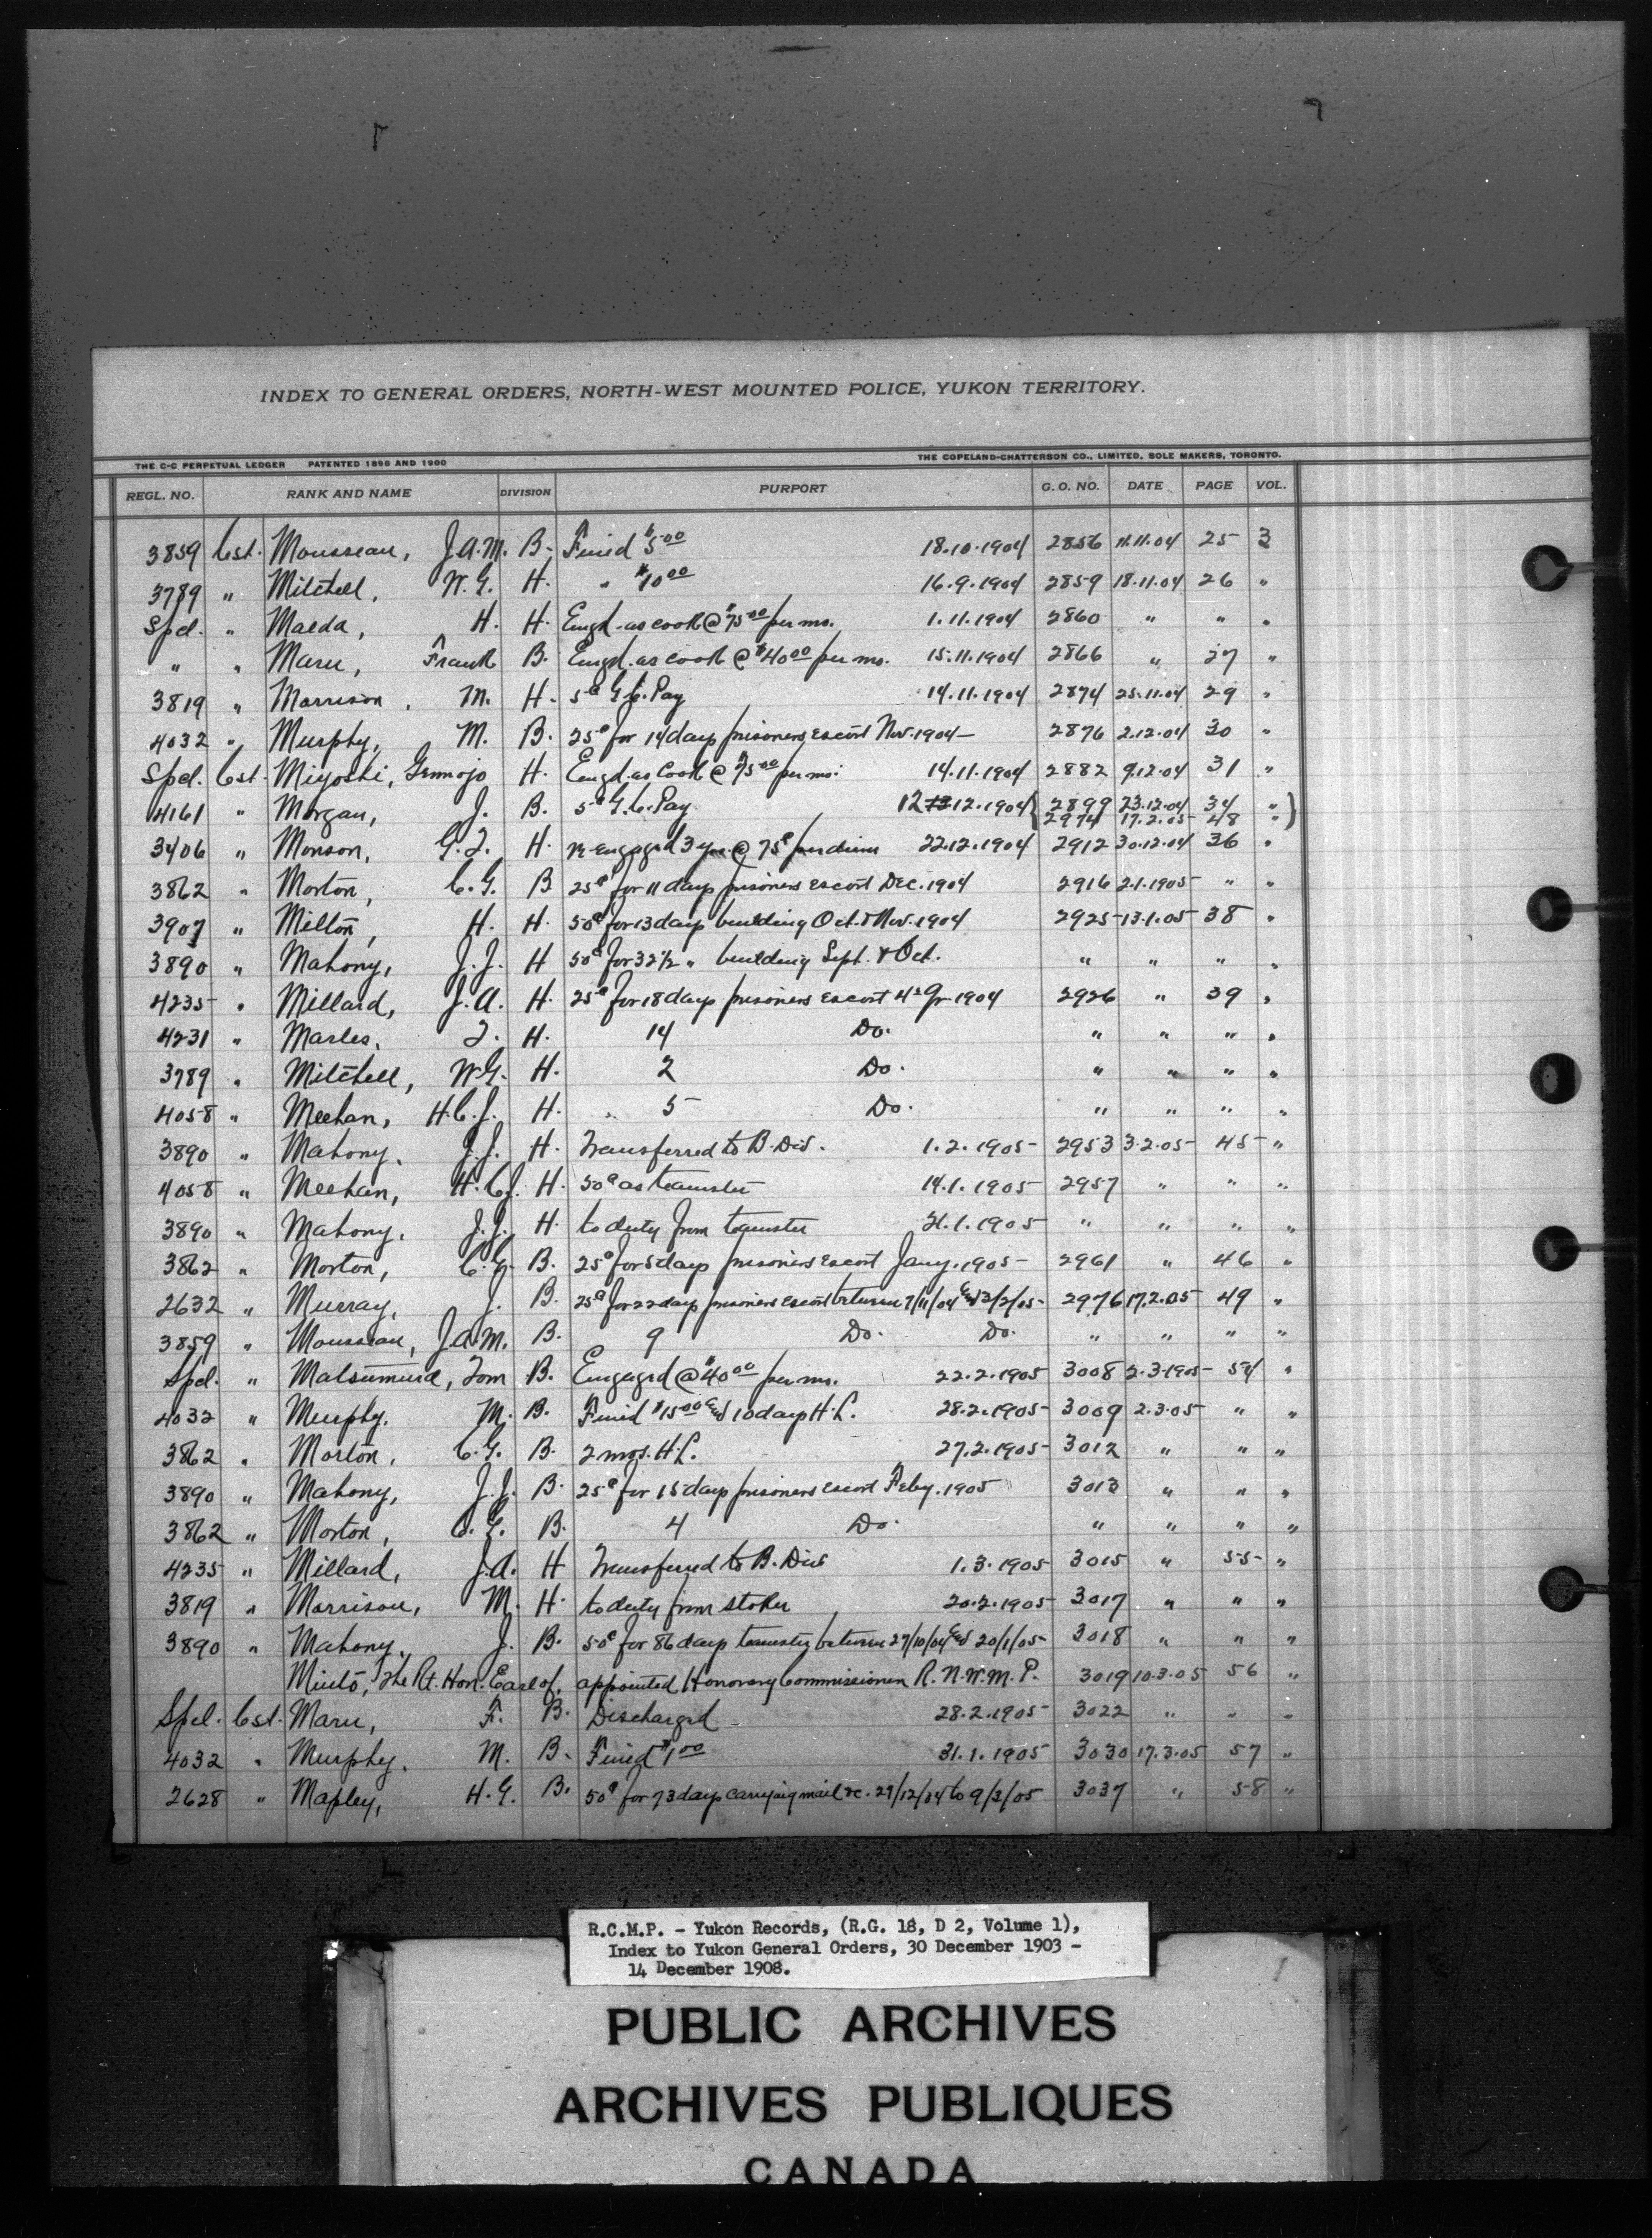 INDEX TO GENERAL ORDERS, NORTH-WEST MOUNTED POLICE, YUKON TERRITORY.
THE C-C PERPETUAL LEDGER PATENTED 1896 AND 1900 THE COPELAND-CHATTERSON CO., LIMITED, SOLE MAKERS, TORONTO.
REGL. NO. RANK AND NAME DIVISION PURPORT G. O. NO. DATE PAGE VOL.
3859 Cst. Mousseau, J.A.M. B. Fined $5.00 18.10.1904 2856 11.11.04 25 3
3789 " Mitchell, W.G. H. " $10.00 16.9.1904 2859 18.11.04 26 "
Spcl. " Maeda, H. H. Engd. as cook @ $75.00 per mo. 1.11.1904 2860 " " "
" " Maru, Frank B. Engd. as cook @ $40.00 per mo. 15.11.1904 2866 " 27 "
3819 " Morrison, M. H. 5¢ G.C. Pay 14.11.1904 2874 25.11.04 29 "
4032 " Murphy, M. B. 25¢ for 14 days prisoners escort Nov. 1904 — 2876 2.12.04 30 "
Spcl. Cst. Miyoshi, H. Engd. as Cook @ $75.00 per mo. 14.11.1904 2882 9.12.04 31 "
4161 " Morgan, J. B. 5¢ G.C. Pay 12 13.12.1904 2899 23.12.04 34 "
2974 17.2.05 48 "
3406 " Monson, G.J. H. re-engaged 3 yrs. @ 75¢ per diem 22.12.1904 2912 30.12.04 36 "
3862 " Morton, C.G. B 25¢ for 11 days prisoners escort Dec. 1904 2916 2.1.1905 " "
3907 " Milton, H. H. 50¢ for 13 days building Oct. & Nov. 1904 2925 13.1.05 38 "
3890 " Mahony, J.J. H 50¢ for 32½ " building Sept. & Oct. " " " "
4235 " Millard, J.A. H. 25¢ for 18 days prisoners escort 4th Qr. 1904 2926 " 39 "
4231 " Marles, J. H. 14 Do. " " " "
3789 " Mitchell, W.G. H. 2 Do. " " " "
4058 " Meehan, H.C.J. H. " 5 Do. " " " "
3890 " Mahony, J.J. H. Transferred to B. Div. 1.2.1905 2953 3.2.05 45 "
4058 " Meehan, H.C.J. H. 50¢ as teamster 14.1.1905 2957 " " "
3890 " Mahony, J.J. H. to duty from teamster 21.1.1905 " " " "
3862 " Morton, C.G. B. 25¢ for 5 days prisoners escort Jany. 1905 2961 " 46 "
2632 " Murray, J. B. 25¢ for 22 days prisoners escort between 7/11/04 and 3/2/05 2976 17.2.05 49 "
3859 " Mousseau, J.A.M. B. 9 Do. Do. " " " "
Spcl. " Matsumura, Tom B. Engaged @ $40.00 per mo. 22.2.1905 3008 2.3.1905 54 "
4032 " Murphy, M. B. Fined $15.00 and 10 days H.L. 28.2.1905 3009 2.3.05 " "
3862 " Morton, C.G. B. 2 mos. H.L. 27.2.1905 3012 " " "
3890 " Mahony, J.J. B. 25¢ for 15 days prisoners escort Feby. 1905 3013 " " "
3862 " Morton, C.G. B. 4 Do. " " " "
4235 " Millard, J.A. H Transferred to B. Div 1.3.1905 3015 " 55 "
3819 " Morrison, M. H. to duty from stoker 20.2.1905 3017 " " "
3890 " Mahony, J. B. 50¢ for 86 days teamster between 27/10/04 and 20/1/05 3018 " " "
Minto, The Rt. Hon. Earl of, appointed Honorary Commissioner R.N.W.M.P. 3019 10.3.05 56 "
Spcl. Cst. Maru, F. B. Discharged 28.2.1905 3022 " " "
4032 " Murphy, M. B. Fined $1.00 31.1.1905 3030 17.3.05 57 "
2628 " Mapley, H.G. B. 50¢ for 73 days carrying mail &c. 29/12/04 to 9/3/05 3037 " 58 "
R.C.M.P. - Yukon Records, (R.G. 18, D 2, Volume 1),
Index to Yukon General Orders, 30 December 1903 -
14 December 1908.
PUBLIC ARCHIVES
ARCHIVES PUBLIQUES
CANADA